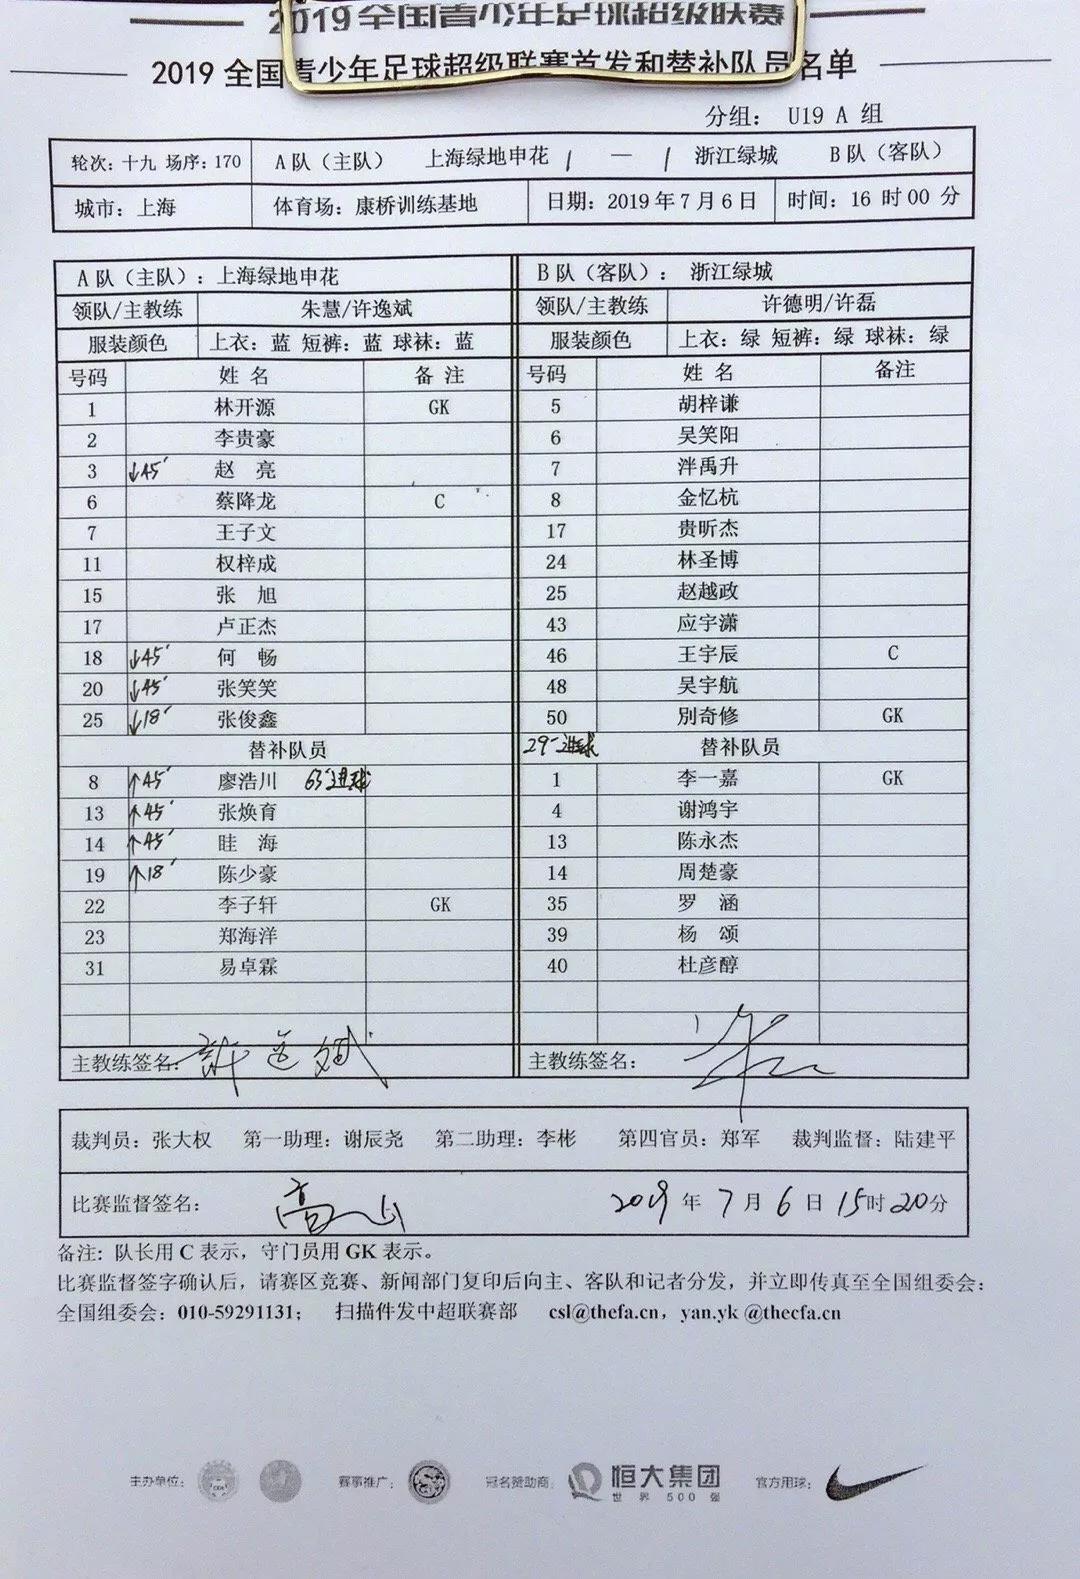 2019全国青少年足球超级联赛
2019 全国青少年足球超级联赛首发和替补队员名单
分组： U19 A 组
轮次：十九 场序：170 A队（主队） 上海绿地申花 1 — 1 浙江绿城 B队（客队）
城市：上海 体育场：康桥训练基地 日期：2019年7月6日 时间：16时00分
A队（主队）：上海绿地申花 B队（客队）： 浙江绿城
领队/主教练 朱慧/许逸斌 领队/主教练 许德明/许磊
服装颜色 上衣：蓝 短裤：蓝 球袜：蓝 服装颜色 上衣：绿 短裤：绿 球袜：绿
号码 姓 名 备 注 号码 姓 名 备注
1 林开源 GK 5 胡梓谦
2 李贵豪 6 吴笑阳
3 ↓45′ 赵 亮 7 泮禹升
6 蔡降龙 C 8 金忆杭
7 王子文 17 贵昕杰
11 权梓成 24 林圣博
15 张 旭 25 赵越政
17 卢正杰 43 应宇潇
18 ↓45′ 何 畅 46 王宇辰 C
20 ↓45′ 张笑笑 48 吴宇航
25 ↓18′ 张俊鑫 50 別奇修 GK
替补队员 29′进球 替补队员
8 ↑45′ 廖浩川 63′进球 1 李一嘉 GK
13 ↑45′ 张焕育 4 谢鸿宇
14 ↑45′ 眭 海 13 陈永杰
19 ↑18′ 陈少豪 14 周楚豪
22 李子轩 GK 35 罗 涵
23 郑海洋 39 杨 颂
31 易卓霖 40 杜彦醇
主教练签名：许逸斌 主教练签名：
裁判员：张大权 第一助理：谢辰尧 第二助理：李彬 第四官员：郑军 裁判监督：陆建平
比赛监督签名： 2019年7月6日15时20分
备注：队长用 C 表示，守门员用 GK 表示。
比赛监督签字确认后，请赛区竞赛、新闻部门复印后向主、客队和记者分发，并立即传真至全国组委会：
全国组委会：010-59291131； 扫描件发中超联赛部 csl@thefa.cn，yan.yk @thecfa.cn
主办单位： 赛事推广： 冠名赞助商： 恒大集团 世界500强 官方用球：